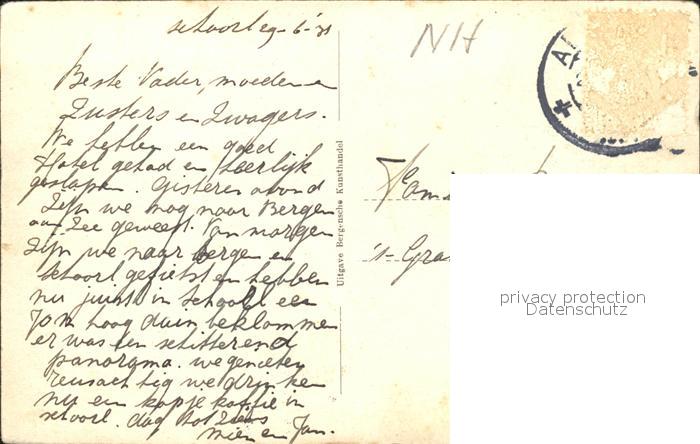 schoorl 9-6-'31
NH
Beste Vader, moeder en
Zusters en Zwagers.
We hebben een goed
Hotel gehad en heerlijk
geslapen. Gisteren avond
zijn we nog naar Bergen
aan Zee geweest. Van morgen
zijn we naar bergen en
schoorl gefietst en hebben
nu juist in schoorl een
hoog duin beklommen
er was een schitterend
panorama. we genieten
reusachtig we drinken
nu een kopje koffie in
schoorl. dag tot ziens
Mien en Jan.
Uitgave Bergensche Kunsthandel
Fam
's-Gra
privacy protection
Datenschutz